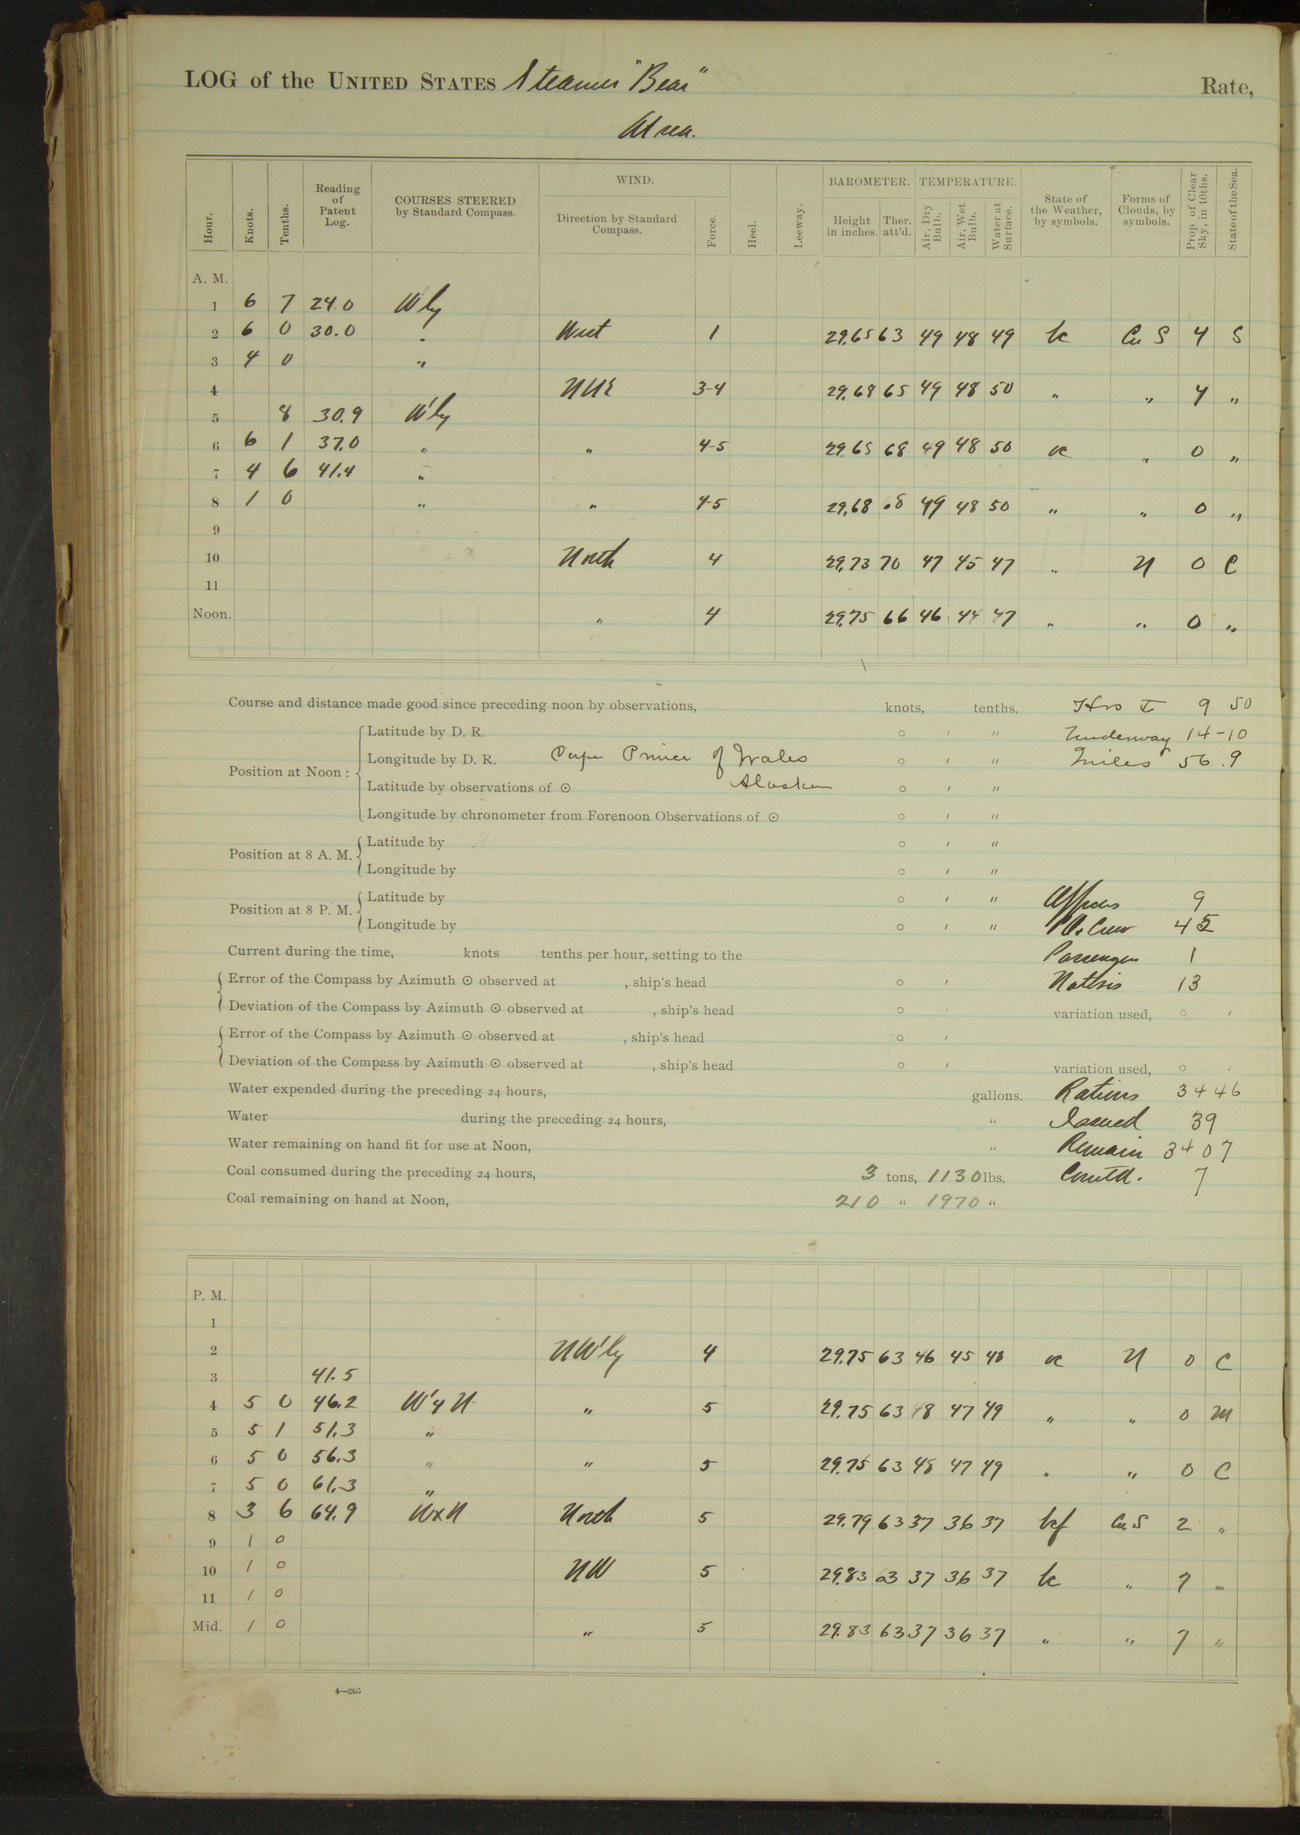 LOG of the UNITED STATES Steamer "Bear" Rate,
At sea.
Hour. Knots. Tenths. Reading of Patent Log. COURSES STEERED by Standard Compass. WIND. Direction by Standard Compass. Force. Heel. Leeway. BAROMETER. Height in inches. Ther. att'd. TEMPERATURE. Air, Dry Bulb. Air, Wet Bulb. Water at Surface. State of the Weather, by symbols. Forms of Clouds, by symbols. Prop. of Clear Sky, in 10ths. State of the Sea.
A. M.
1 6 7 24.0 W'ly
2 6 0 30.0 " West 1 29.65 63 49 48 49 bc Cu S 4 S
3 4 0 "
4 NNE 3-4 29.68 65 49 48 50 " " 4 "
5 8 30.9 W'ly
6 6 1 37.0 " " 4-5 29.65 68 49 48 50 oc " 0 "
7 4 6 41.4 "
8 1 0 " " 4-5 29.68 68 49 48 50 " " 0 "
9
10 North 4 29.73 70 47 45 47 " N 0 C
11
Noon. " 4 29.75 66 46 44 47 " " 0 "
Course and distance made good since preceding noon by observations, knots, tenths. Hrs I 9 50
Latitude by D. R. ° ′ ″ Underway 14-10
Position at Noon: Longitude by D. R. Cape Prince of Wales ° ′ ″ Miles 56.9
Latitude by observations of ☉ Alaska ° ′ ″
Longitude by chronometer from Forenoon Observations of ☉ ° ′ ″
Position at 8 A. M. Latitude by ° ′ ″
Longitude by ° ′ ″
Position at 8 P. M. Latitude by ° ′ ″ Officers 9
Longitude by ° ′ ″ Crew 45
Current during the time, knots tenths per hour, setting to the Passenger 1
Error of the Compass by Azimuth ☉ observed at , ship's head ° ′ Natives 13
Deviation of the Compass by Azimuth ☉ observed at , ship's head ° ′ variation used, ° ′
Error of the Compass by Azimuth ☉ observed at , ship's head ° ′
Deviation of the Compass by Azimuth ☉ observed at , ship's head ° ′ variation used, ° ′
Water expended during the preceding 24 hours, gallons. Rations 3446
Water during the preceding 24 hours, " Issued 39
Water remaining on hand fit for use at Noon, " Remain 3407
Coal consumed during the preceding 24 hours, 3 tons, 1130 lbs. Com'td. 7
Coal remaining on hand at Noon, 210 " 1970 "
P. M.
1
2 NW'ly 4 29.75 63 46 45 48 oc N 0 C
3 41.5
4 5 0 46.2 W'4 N " 5 29.75 63 48 47 49 " " 0 M
5 5 1 51.3 "
6 5 0 56.3 " " 5 29.75 63 48 47 49 " " 0 C
7 5 0 61.3 "
8 3 6 64.9 WxN North 5 29.79 63 37 36 37 bcf Cu S 2 "
9 1 0
10 1 0 NW 5 29.83 63 37 36 37 bc " 7 "
11 1 0
Mid. 1 0 " 5 29.83 63 37 36 37 " " 7 "
4—265